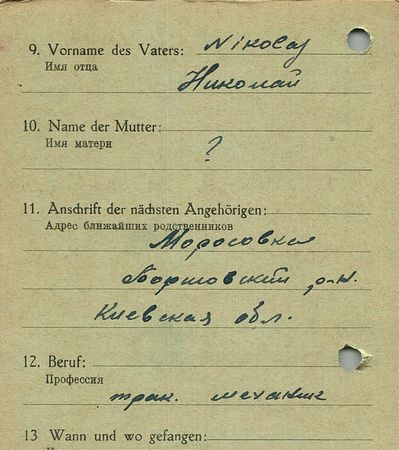 9. Vorname des Vaters: Nikolaj
Имя отца
Николай
10. Name der Mutter:
Имя матери
?
11. Anschrift der nächsten Angehörigen:
Адрес ближайших родственников
Моросовка
р-н.
Киевская обл.
12. Beruf:
Профессия
трак. механик
13 Wann und wo gefangen: